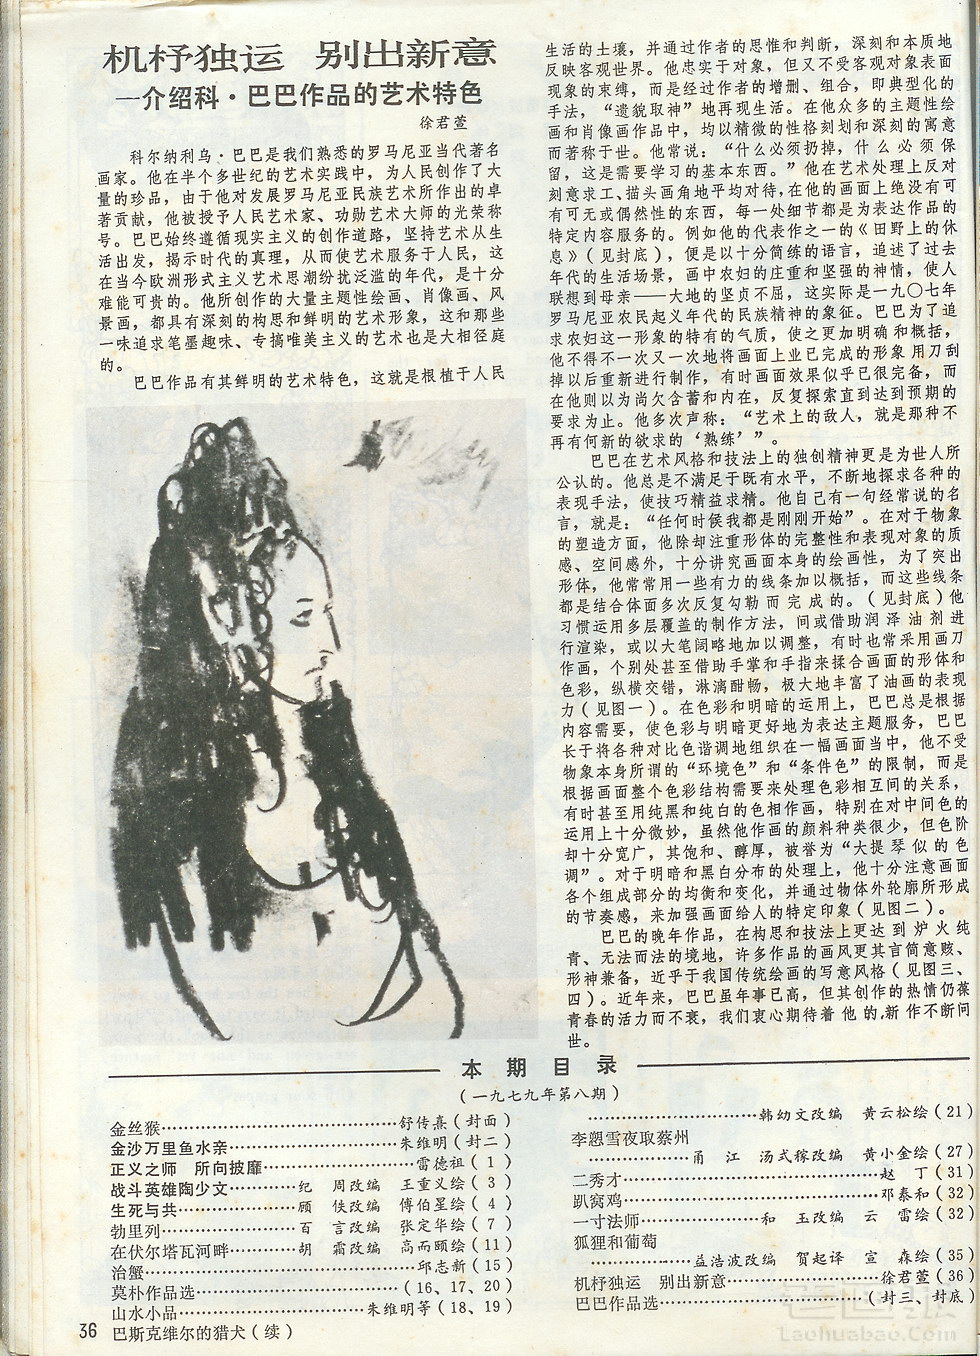 机杼独运 别出新意
—介绍科·巴巴作品的艺术特色
徐君萱
科尔纳利乌·巴巴是我们熟悉的罗马尼亚当代著名
画家。他在半个多世纪的艺术实践中，为人民创作了大
量的珍品，由于他对发展罗马尼亚民族艺术所作出的卓
著贡献，他被授予人民艺术家、功勋艺术大师的光荣称
号。巴巴始终遵循现实主义的创作道路，坚持艺术从生
活出发，揭示时代的真理，从而使艺术服务于人民，这
在当今欧洲形式主义艺术思潮纷扰泛滥的年代，是十分
难能可贵的。他所创作的大量主题性绘画、肖像画、风
景画，都具有深刻的构思和鲜明的艺术形象，这和那些
一味追求笔墨趣味、专搞唯美主义的艺术也是大相径庭
的。
巴巴作品有其鲜明的艺术特色，这就是根植于人民
生活的土壤，并通过作者的思惟和判断，深刻和本质地
反映客观世界。他忠实于对象，但又不受客观对象表面
现象的束缚，而是经过作者的增删、组合，即典型化的
手法，“遗貌取神”地再现生活。在他众多的主题性绘
画和肖像画作品中，均以精微的性格刻划和深刻的寓意
而著称于世。他常说：“什么必须扔掉，什么必须保
留，这是需要学习的基本东西。”他在艺术处理上反对
刻意求工、描头画角地平均对待，在他的画面上绝没有可
有可无或偶然性的东西，每一处细节都是为表达作品的
特定内容服务的。例如他的代表作之一的《田野上的休
息》（见封底），便是以十分简练的语言，追述了过去
年代的生活场景，画中农妇的庄重和坚强的神情，使人
联想到母亲——大地的坚贞不屈，这实际是一九〇七年
罗马尼亚农民起义年代的民族精神的象征。巴巴为了追
求农妇这一形象的特有的气质，使之更加明确和概括，
他不得不一次又一次地将画面上业已完成的形象用刀刮
掉以后重新进行制作，有时画面效果似乎已很完备，而
在他则以为尚欠含蓄和内在，反复探索直到达到预期的
要求为止。他多次声称：“艺术上的敌人，就是那种不
再有何新的欲求的‘熟练’”。
巴巴在艺术风格和技法上的独创精神更是为世人所
公认的。他总是不满足于既有水平，不断地探求各种的
表现手法，使技巧精益求精。他自己有一句经常说的名
言，就是：“任何时候我都是刚刚开始”。在对于物象
的塑造方面，他除却注重形体的完整性和表现对象的质
感、空间感外，十分讲究画面本身的绘画性，为了突出
形体，他常常用一些有力的线条加以概括，而这些线条
都是结合体面多次反复勾勒而完成的。（见封底）他
习惯运用多层覆盖的制作方法，间或借助润泽油剂进
行渲染，或以大笔阔略地加以调整，有时也常采用画刀
作画，个别处甚至借助手掌和手指来揉合画面的形体和
色彩，纵横交错，淋漓酣畅，极大地丰富了油画的表现
力（见图一）。在色彩和明暗的运用上，巴巴总是根据
内容需要，使色彩与明暗更好地为表达主题服务，巴巴
长于将各种对比色谐调地组织在一幅画面当中，他不受
物象本身所谓的“环境色”和“条件色”的限制，而是
根据画面整个色彩结构需要来处理色彩相互间的关系，
有时甚至用纯黑和纯白的色相作画，特别在对中间色的
运用上十分微妙，虽然他作画的颜料种类很少，但色阶
却十分宽广，其饱和、醇厚，被誉为“大提琴似的色
调”。对于明暗和黑白分布的处理上，他十分注意画面
各个组成部分的均衡和变化，并通过物体外轮廓所形成
的节奏感，来加强画面给人的特定印象（见图二）。
巴巴的晚年作品，在构思和技法上更达到炉火纯
青、无法而法的境地，许多作品的画风更其言简意赅、
形神兼备，近乎于我国传统绘画的写意风格（见图三、
四）。近年来，巴巴虽年事已高，但其创作的热情仍葆
青春的活力而不衰，我们衷心期待着他的新作不断问
世。
本期目录
（一九七九年第八期）
金丝猴……舒传熹（封面）
金沙万里鱼水亲……朱维明（封二）
正义之师 所向披靡……雷德祖（1）
战斗英雄陶少文……纪 周改编 王重义绘（3）
生死与共……顾 佚改编 傅伯星绘（4）
勃里列……百 言改编 张定华绘（7）
在伏尔塔瓦河畔……胡 霜改编 高而颐绘（11）
治蟹……邱志新（15）
莫朴作品选……（16、17、20）
山水小品……朱维明等（18、19）
巴斯克维尔的猎犬（续）
……韩幼文改编 黄云松绘（21）
李愬雪夜取蔡州
……甬 江 汤式稼改编 黄小金绘（27）
二秀才……赵 丁（31）
趴窝鸡……邓泰和（32）
一寸法师……和 玉改编 云 雷绘（32）
狐狸和葡萄
……益浩波改编 贺起译 宣 森绘（35）
机杼独运 别出新意……徐君萱（36）
巴巴作品选……（封三、封底）
36
老画报
Laohuabao.Com